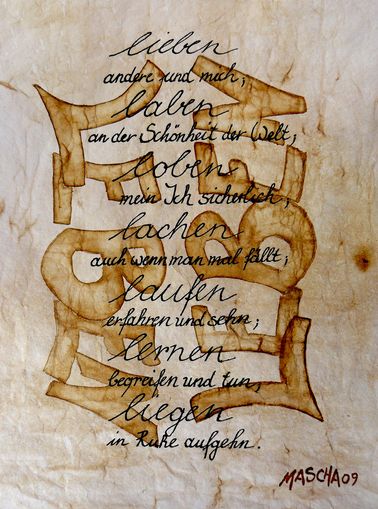 lieben
andere und mich;
laben
an der Schönheit der Welt;
loben
mein Ich sicherlich;
lachen
auch wenn man mal fällt;
laufen
erfahren und sehn;
lernen
begreifen und tun,
liegen
in Ruhe aufgehn.
MASCHA 09